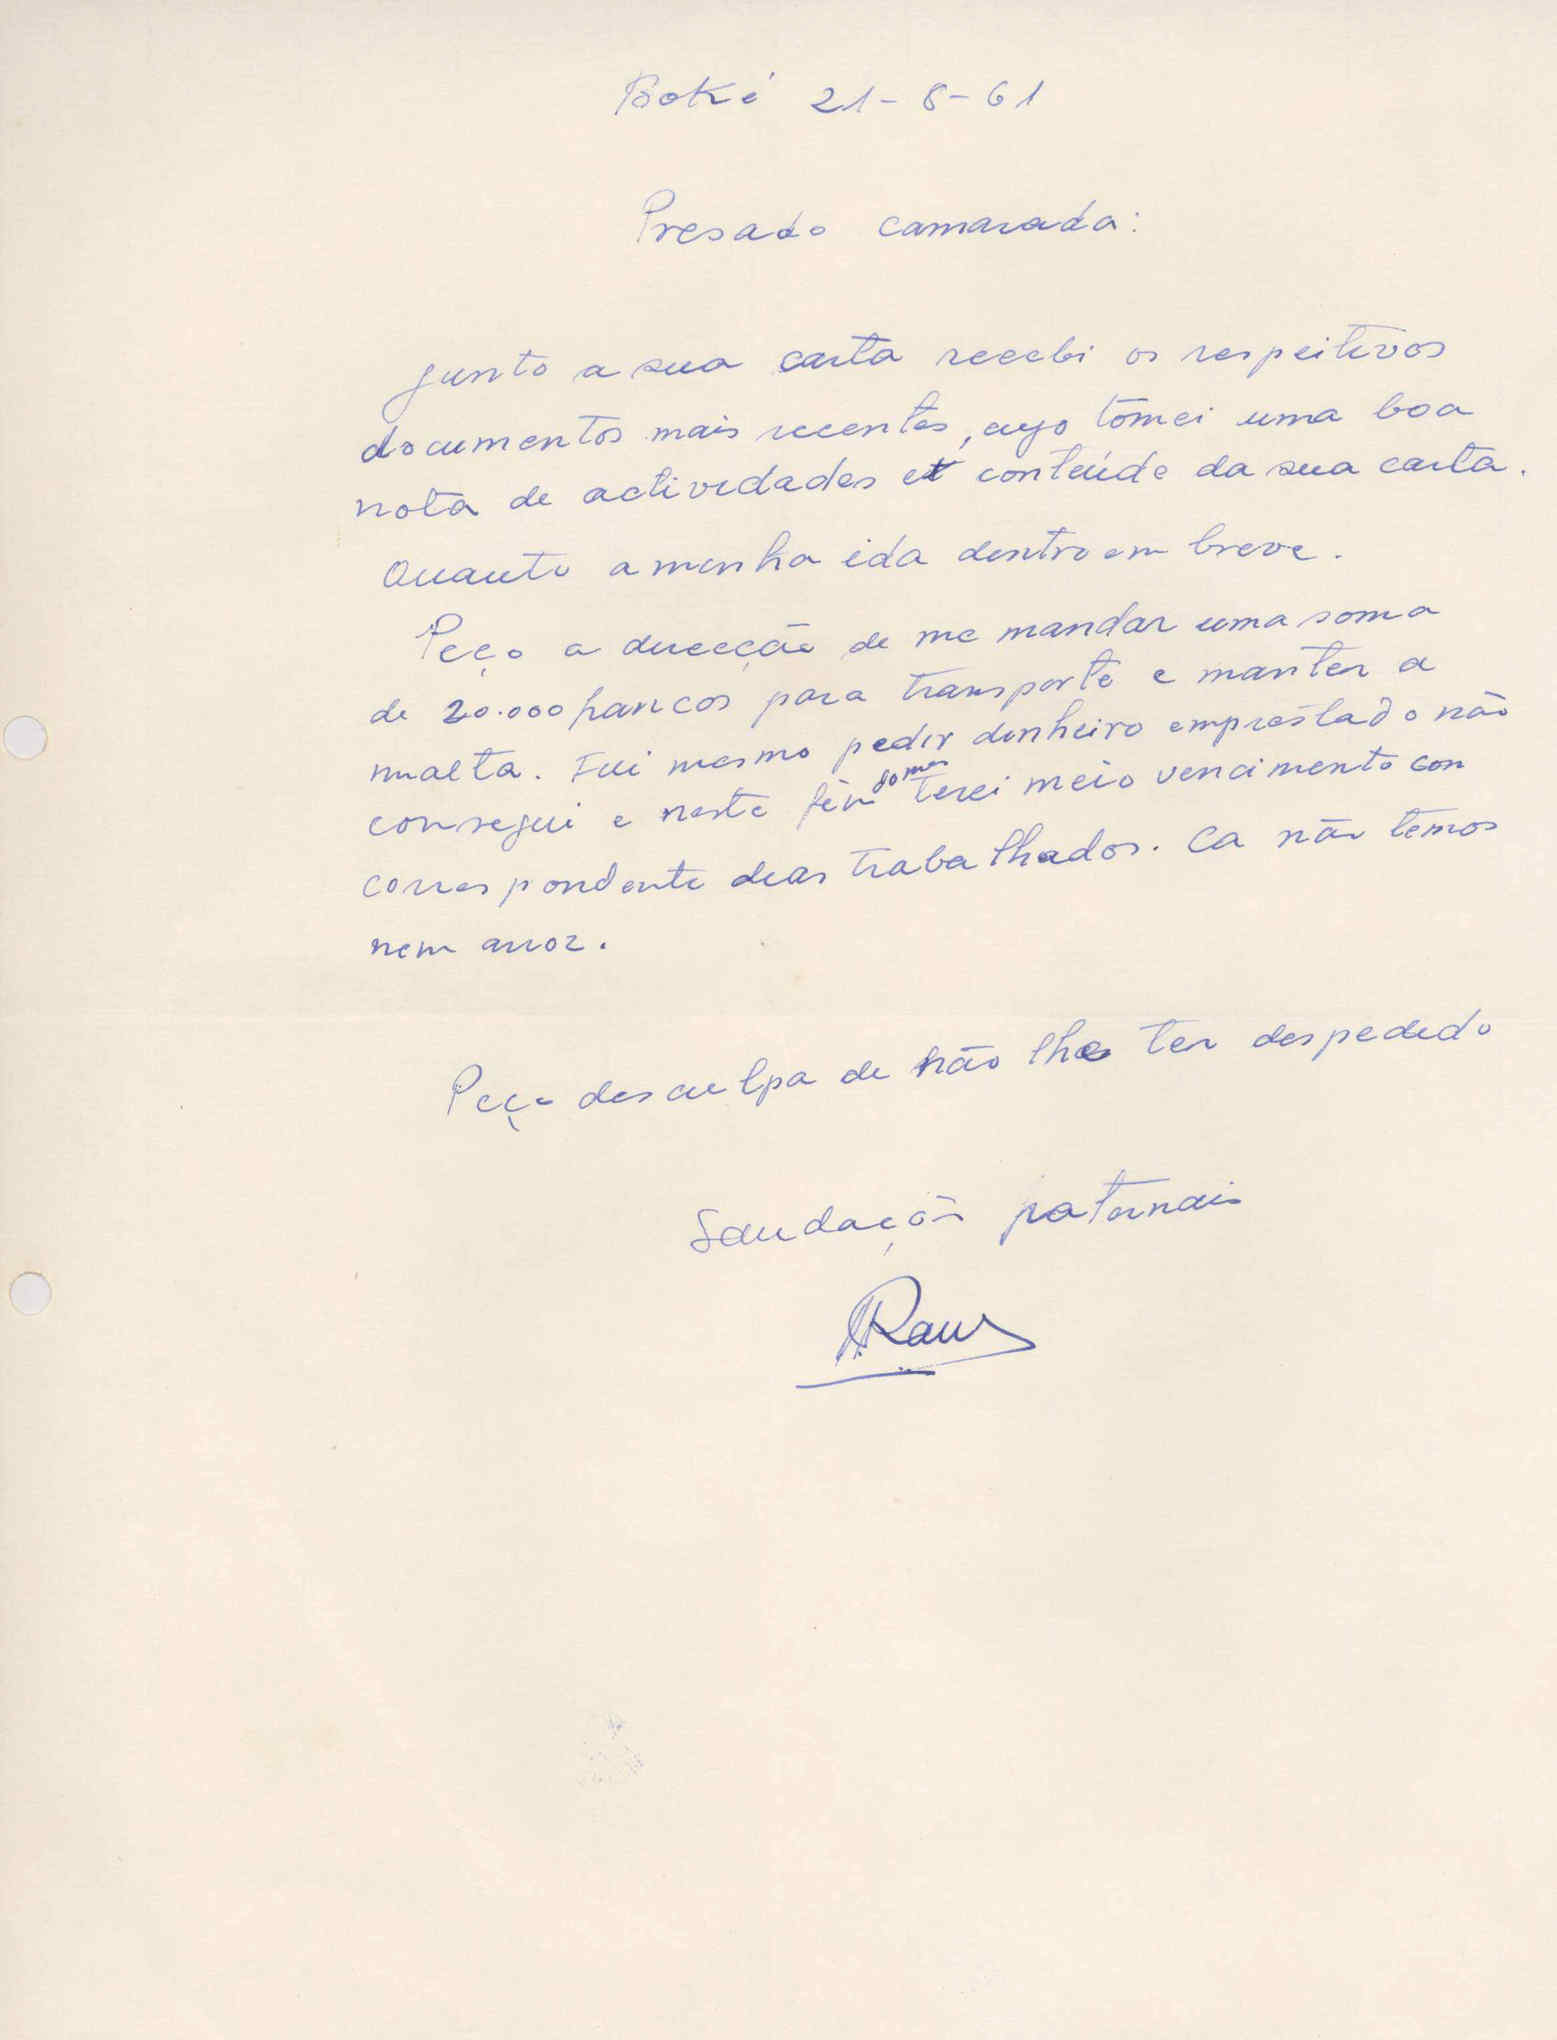 Boké 21-8-61
Presado camarada:
Junto a sua carta recebi os respeitivos
documentos mais recentes, cujo tomei uma boa
nota de actividades et conteúde da sua carta.
Quanto a minha ida dentro em breve.
Peço a direcção de me mandar uma soma
de 20.000 francos para transporte e manter a
malta. Fui mesmo pedir dinheiro emprestado não
consegui e neste fim do mes terei meio vencimento con
correspondente dias trabalhados. Ca não temos
nem arroz.
Peço desculpa de não lhe ter despedido
Saudações paternais